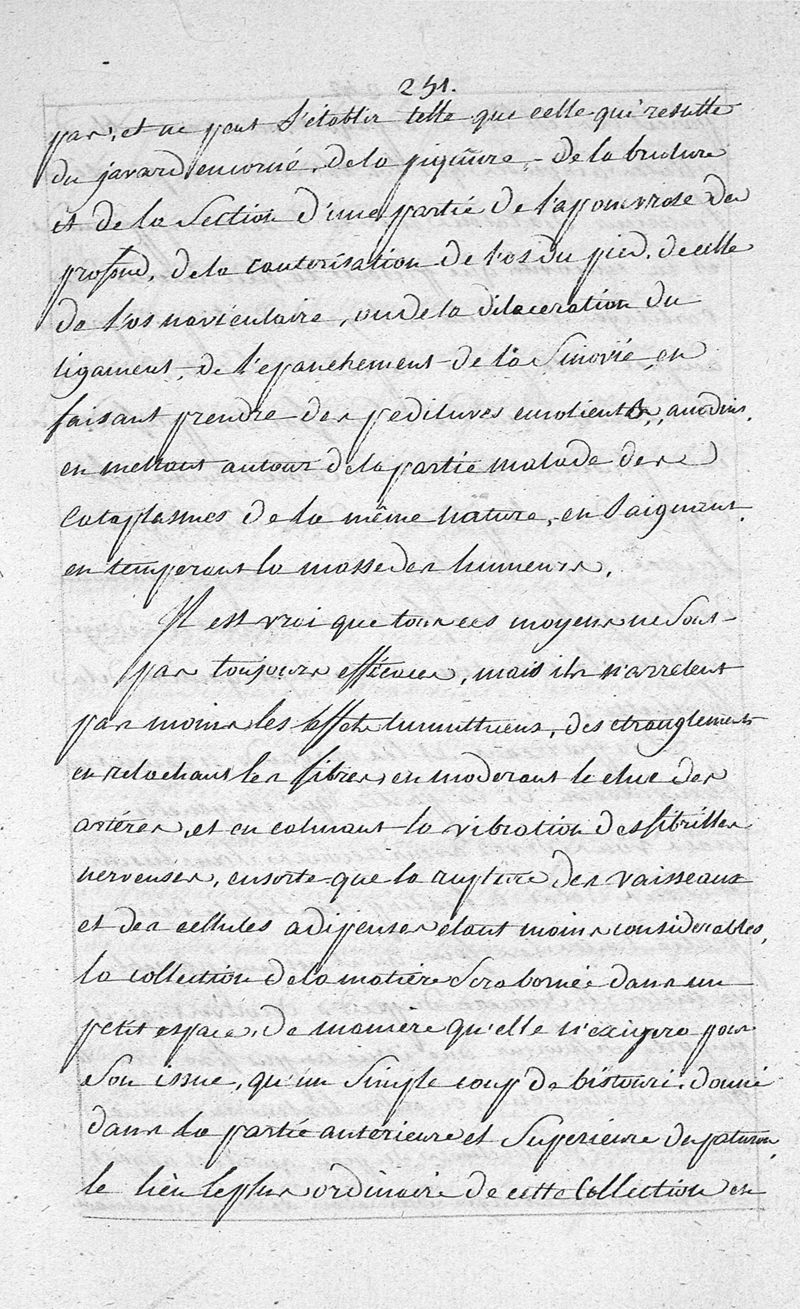 251.
pas, et ne peut s'établir telle que celle qui resulte
du javard encorné, de la piquure, de la brulure
et de la Section d'une partie de l'aponevrose du
profond, de la cauterisation de l'os du pied, de celle
de l'os naviculaire, ou de la dilaceration du
ligament, de l'epanchement de la Sinovie, en
faisant prendre des pediluves emolients, anodins,
en mettant autour de la partie malade des
Cataplasmes de la même nature, en Saignant,
en temperant la masse des humeurs.
Il est vrai que tous ces moyens ne Sont
pas toujours efficaces, mais ils n'arretent
pas moins les effets tumultueux, des etranglements
en relachant les fibres, en moderant le choc des
artéres, et en calmant la vibration des fibrilles
nerveuses, ensorte que la rupture des vaisseaux
et des cellules adipeuses etant moins considerables,
la collection de la matiére Sera bornée dans un
petit espace, de maniére qu'elle n'exigera pour
Son issue, qu'un Simple coup de bistouri, donné
dans la partie anterieure et Superieure du paturon,
le lieu le plus ordinaire de cette Collection en